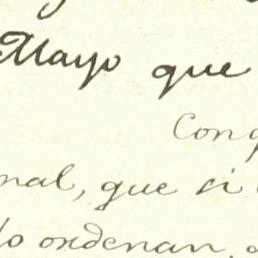 Mayo que
Cong
nal, que si
lo ordenan,